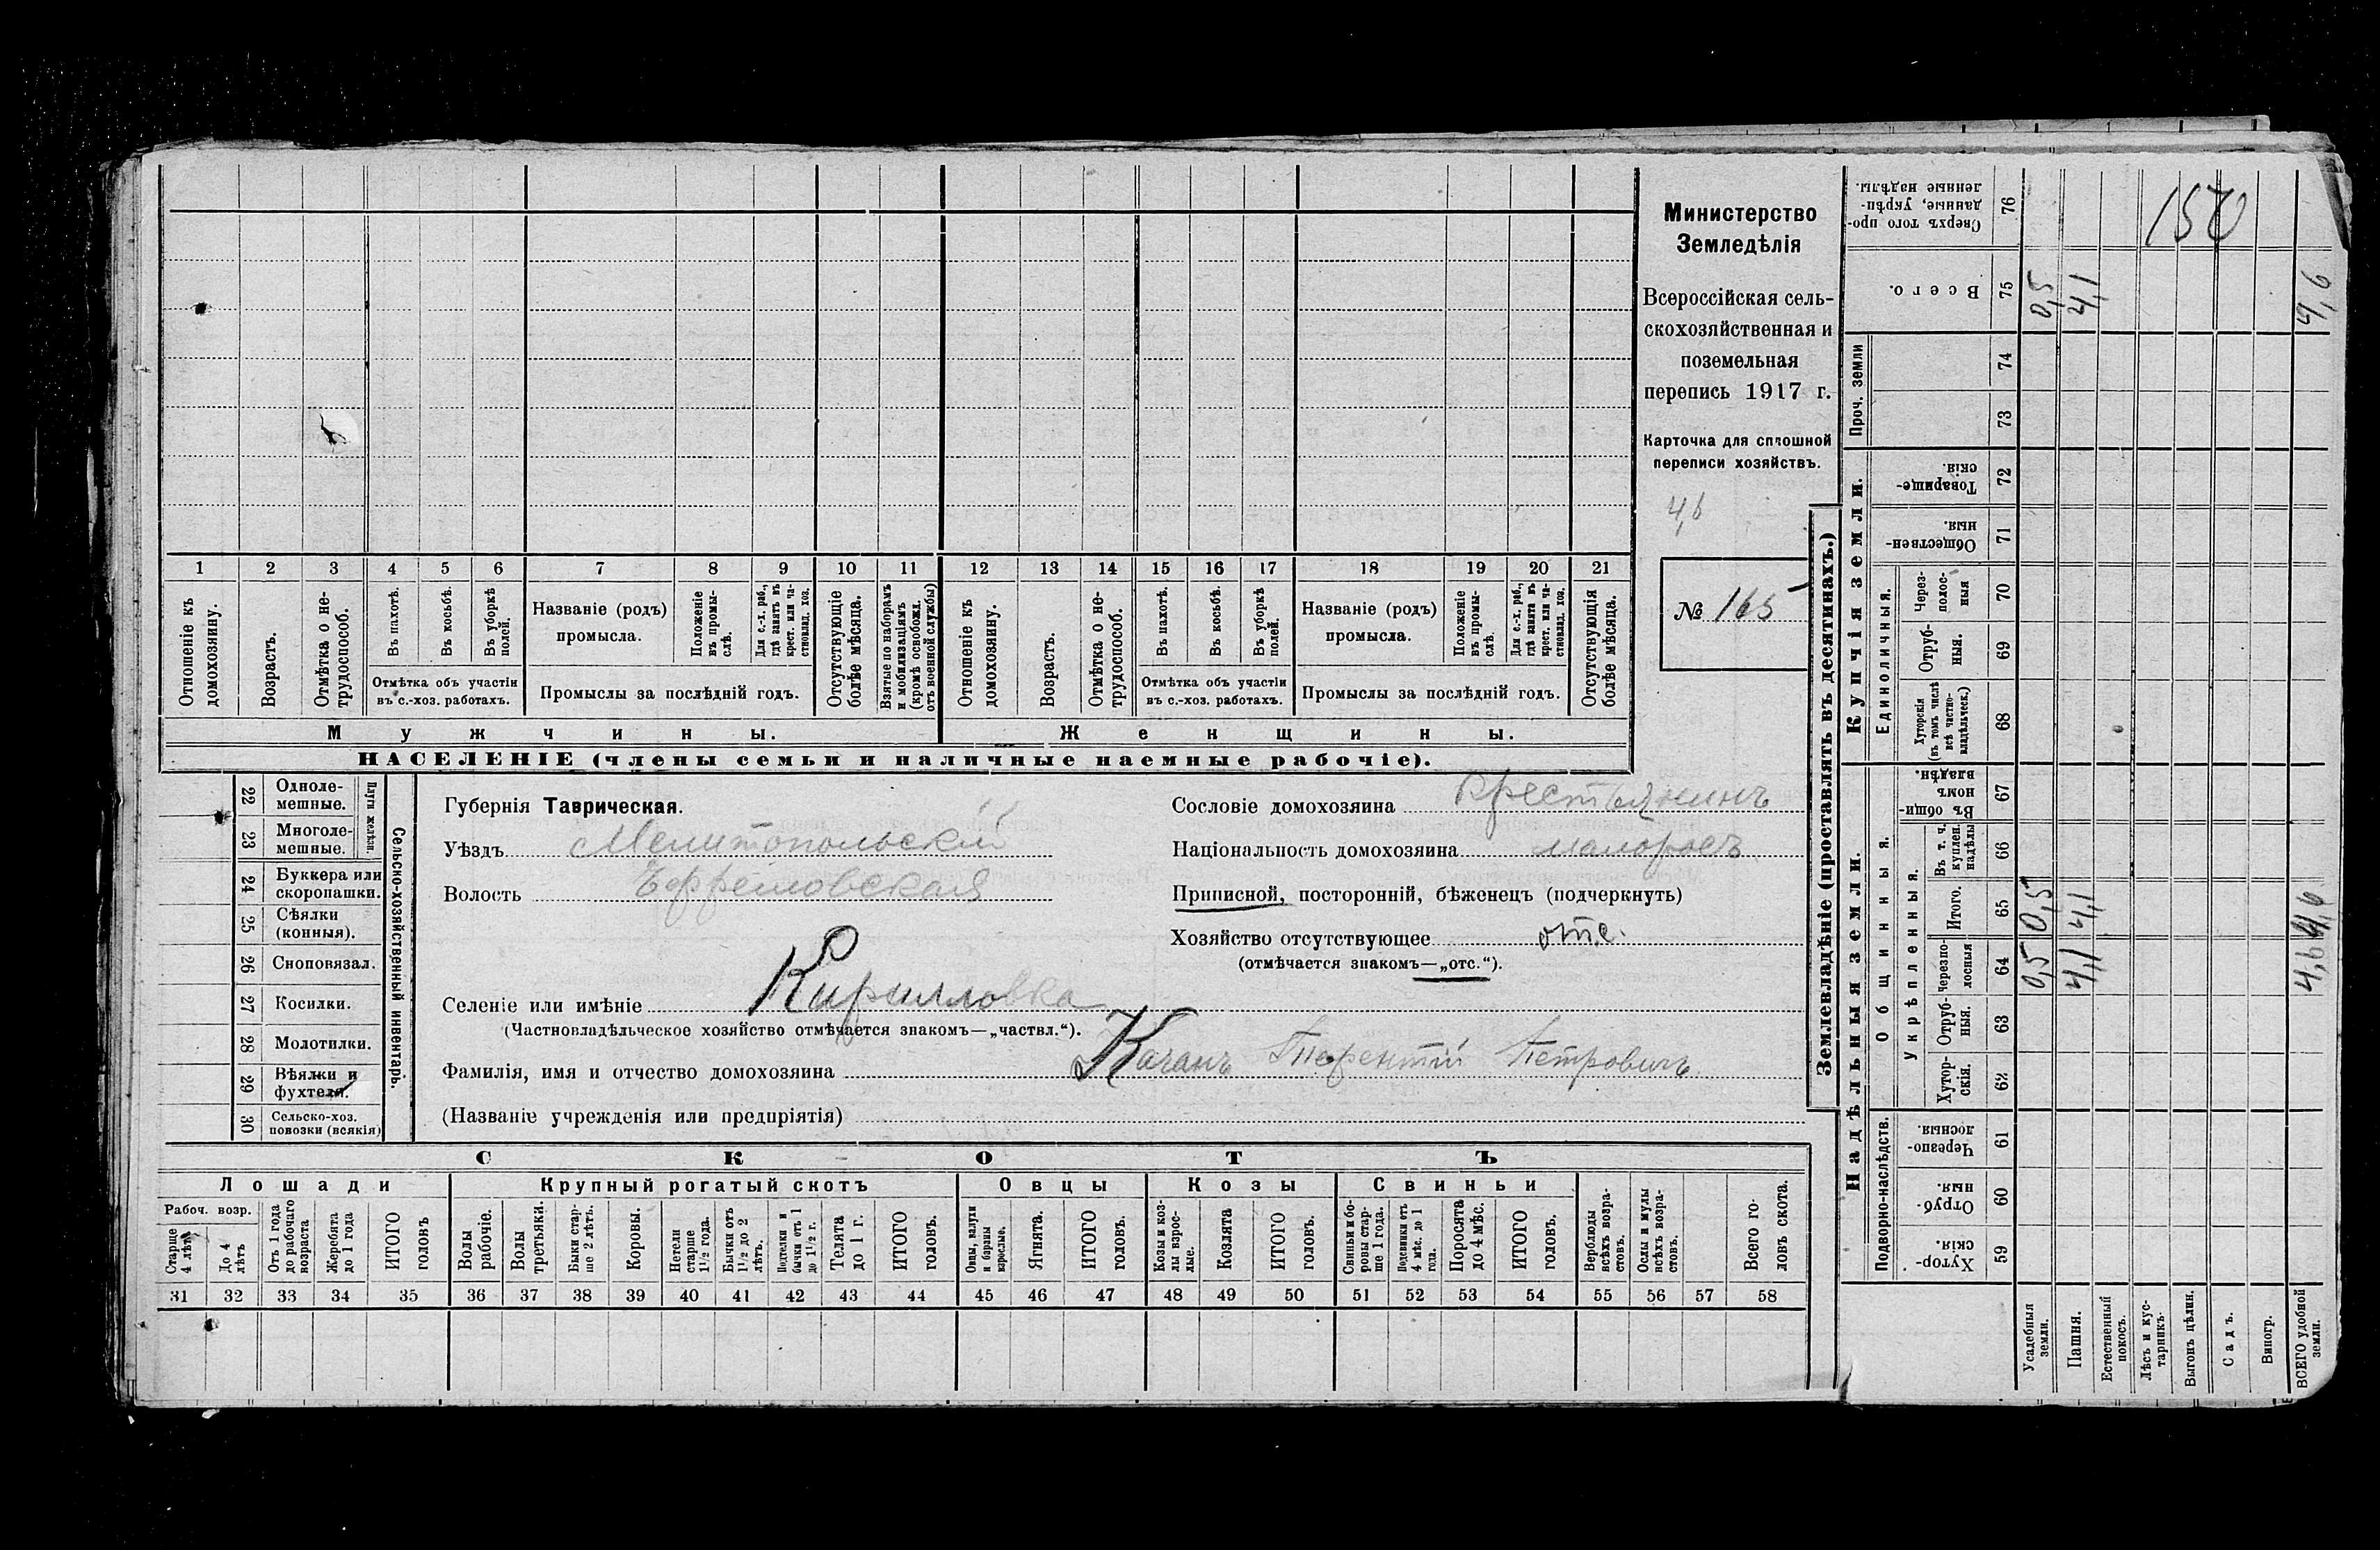 Министерство
Земледѣлія
Всероссійская сель-
скохозяйственная и
поземельная
перепись 1917 г.
Карточка для сплошной
переписи хозяйствъ.
4,6
№ 165
1 2 3 4 5 6 7 8 9 10 11 12 13 14 15 16 17 18 19 20 21
Отношеніе къ домохозяину.
Возрастъ.
Отмѣтка о не-трудоспособ.
Въ пахотѣ.
Въ косьбѣ.
Въ уборкѣ полей.
Отмѣтка объ участіи
въ с.-хоз. работахъ.
Названіе (родъ)
промысла.
Положеніе въ промы-слѣ.
Для с.-х. раб., гдѣ занятъ въ крест. или ча-стновлад. хоз.
Промыслы за послѣдній годъ.
Отсутствующіе болѣе мѣсяца.
Взятые по наборамъ и мобилизаціямъ (кромѣ освобожд. отъ военной службы)
Отношеніе къ домохозяину.
Возрастъ.
Отмѣтка о не-трудоспособ.
Въ пахотѣ.
Въ косьбѣ.
Въ уборкѣ полей.
Отмѣтка объ участіи
въ с.-хоз. работахъ.
Названіе (родъ)
промысла.
Положеніе въ промы-слѣ.
Для с.-х. раб., гдѣ занятъ въ крест. или ча-стновлад. хоз.
Промыслы за послѣдній годъ.
Отсутствующія болѣе мѣсяца.
Мужчины. Женщины.
НАСЕЛЕНІЕ (члены семьи и наличные наемные рабочіе).
22 Одноле-мешные.
23 Многоле-мешные.
Плуги желѣзн.
24 Буккера или скоропашки.
25 Сѣялки (конныя).
26 Сноповязал.
27 Косилки.
28 Молотилки.
29 Вѣялки и фухтеля.
30 Сельско-хоз. повозки (всякія)
Сельско-хозяйственный инвентарь.
Губернія Таврическая.
Уѣздъ Мелитопольскій
Волость Ефремовская
Селеніе или имѣніе Кирилловка
(Частновладѣльческое хозяйство отмѣчается знакомъ—„частвл.“).
Фамилія, имя и отчество домохозяина Качанъ Терентій Петровичъ
(Названіе учрежденія или предпріятія)
Сословіе домохозяина Крестьянинъ
Національность домохозяина малоросъ
Приписной, посторонній, бѣженецъ (подчеркнуть)
Хозяйство отсутствующее отс.
(отмѣчается знакомъ—„отс.“).
СКОТЪ
Лошади Крупный рогатый скотъ Овцы Козы Свиньи
Рабоч. возр.
Старше 4 лѣтъ
До 4 лѣтъ
Отъ 1 года до рабочаго возраста
Жеребята до 1 года
ИТОГО головъ
Волы рабочіе.
Волы третьяки.
Быки стар-ше 2 лѣтъ.
Коровы.
Нетели старше 1½ года.
Бычки отъ 1½ до 2 лѣтъ.
Подтелки и бычки отъ 1 до 1½ г.
Телята до 1 г.
ИТОГО головъ.
Овцы, валухи и бараны взрослые.
Ягнята.
ИТОГО головъ.
Козы и коз-лы взрос-лые.
Козлята
ИТОГО головъ.
Свиньи и бо-ровы стар-ше 1 года.
Подсвинки отъ 4 мѣс. до 1 года.
Поросята до 4 мѣс.
ИТОГО головъ.
Верблюды всѣхъ возра-стовъ.
Ослы и мулы всѣхъ возра-стовъ.
Всего го-ловъ скота.
31 32 33 34 35 36 37 38 39 40 41 42 43 44 45 46 47 48 49 50 51 52 53 54 55 56 57 58
Землевладѣніе (проставлять въ десятинахъ.)
Надѣльныя земли.
Купчія земли.
Проч. земли
Подворно-наслѣдств.
Общинныя.
Укрѣпленныя.
Единоличныя.
Хутор-скія. 59
Отруб-ныя. 60
Черезпо-лосныя. 61
Хутор-скія. 62
Отруб-ныя. 63
Черезпо-лосныя 64 0,5 4,1 4,6
Итого. 65 0,5 4,1 4,6
Въ т. ч. куплен. надѣлы 66
Въ общи-номъ владѣн. 67
Хуторскія (въ томъ числѣ всѣ частно-владѣльческ.) 68
Отруб-ныя. 69
Через-полос-ныя 70
Обществен-ныя. 71
Товарище-скія. 72
73
74
Всего. 75 0,5 4,1 4,6
Сверхъ того про-данные, укрѣп-ленные надѣлы. 76
150
Усадебныя земли.
Пашня.
Естественный покосъ.
Лѣсъ и кус-тарникъ.
Выгонъ цѣлин.
Садъ.
Виногр.
ВСЕГО удобной земли.